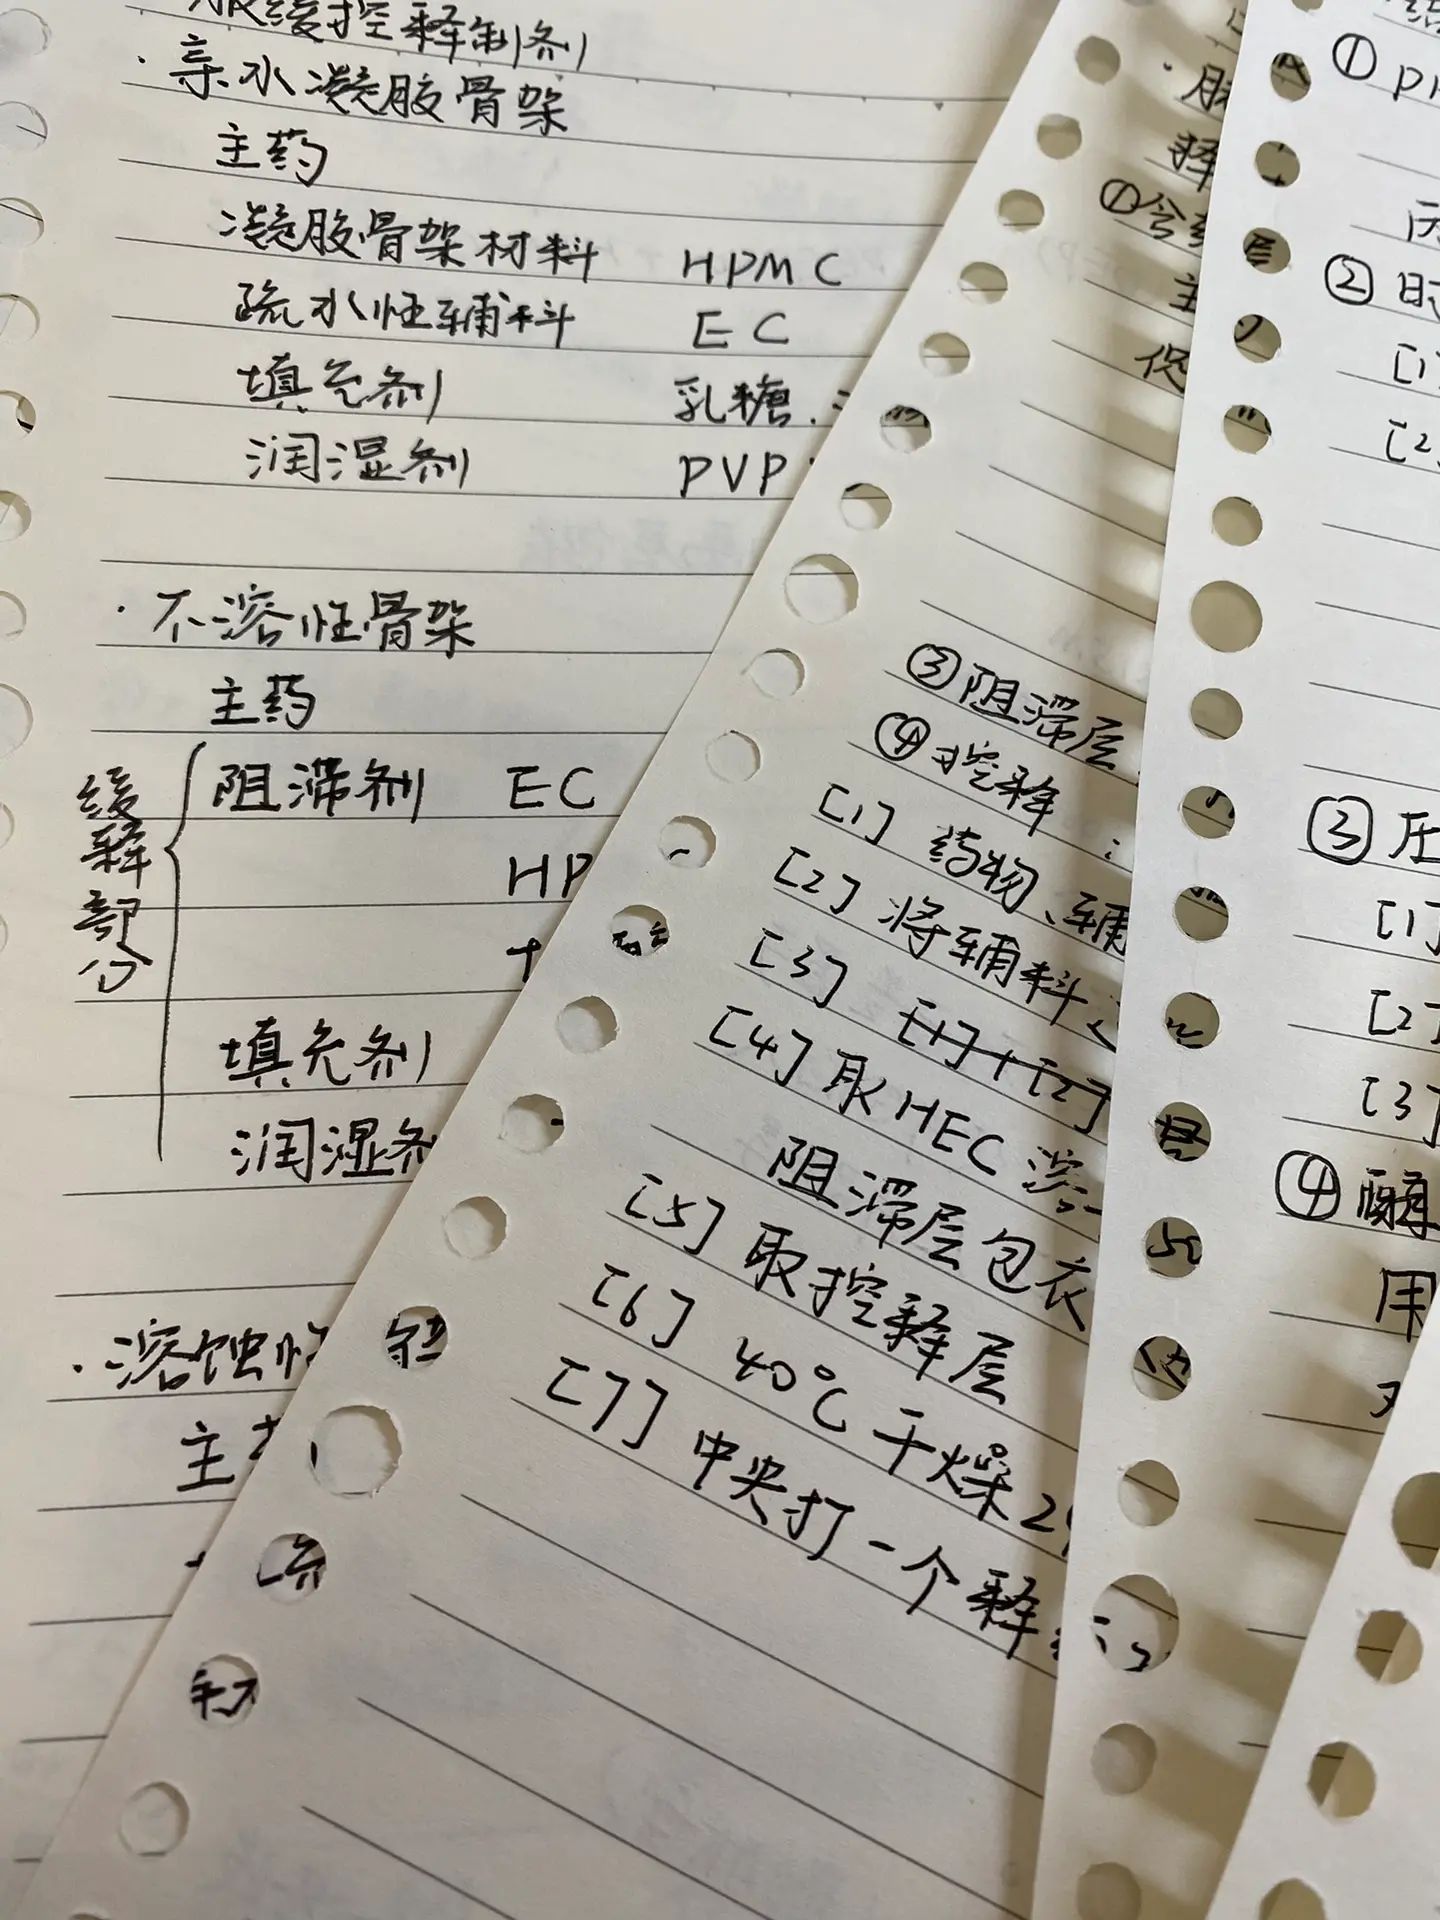 缓控释制剂
· 亲水凝胶骨架
主药
凝胶骨架材料 HPMC
疏水性辅料 EC
填充剂 乳糖
润湿剂 PVP
· 不溶性骨架
主药
缓释部分
阻滞剂 EC
HP
填充剂
润湿剂
· 溶蚀性
主
③阻滞层
④控释:
[1] 药物、辅
[2] 将辅料
[3] [1]+[2]
[4] 取HEC溶
阻滞层包衣
[5] 取控释层
[6] 40℃干燥2
[7] 中央打一个释
· 脉
释
①含
主
促
①
②时
[1]
[2]
③压
[1]
[2]
[3]
④
用